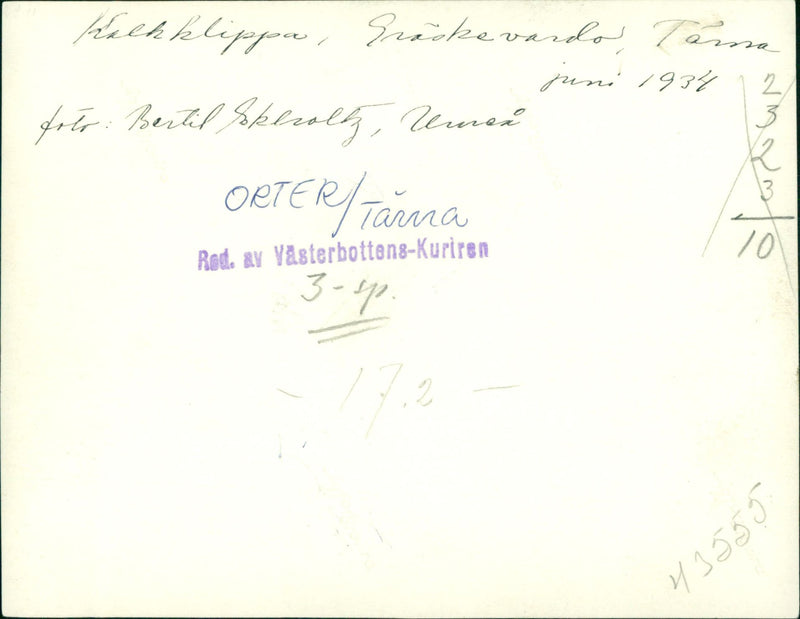 Kalkklippa, Gräskevardo, Tärna
juni 1934
foto: Bertil Ekholtz, Umeå
2
3
2
3
10
ORTER/Tärna
Red. av Västerbottens-Kuriren
3-sp.
- 17.2 -
43555